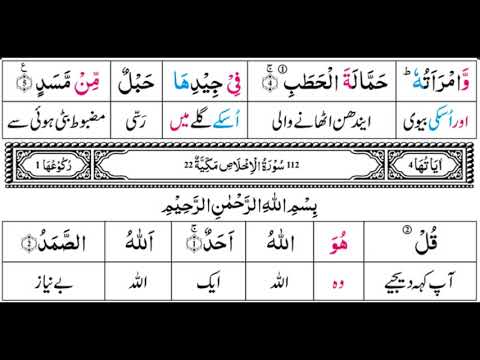 وَّامْرَاَتُهٗ ؕ حَمَّالَةَ الْحَطَبِ ۚ ۝۴ فِیْ جِیْدِهَا حَبْلٌ مِّنْ مَّسَدٍ ۠ ۝۵
اور اُسکی بیوی ایندھن اٹھانے والی اُسکے گلے میں رسّی مضبوط بٹی ہوئی سے
اٰیَاتُهَا 4 112 سُوْرَةُ الْاِخْلَاصِ مَكِّيَّةٌ 22 رُكُوْعُهَا 1
بِسْمِ اللهِ الرَّحْمٰنِ الرَّحِیْمِ
قُلْ هُوَ اللهُ اَحَدٌ ۚ ۝۱ اَللهُ الصَّمَدُ ۚ ۝۲
آپ کہہ دیجیے وہ اللہ ایک اللہ بے نیاز